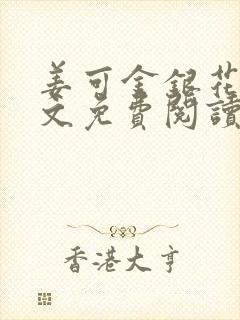 姜可金銀花
文免費閱讀
香港大亨